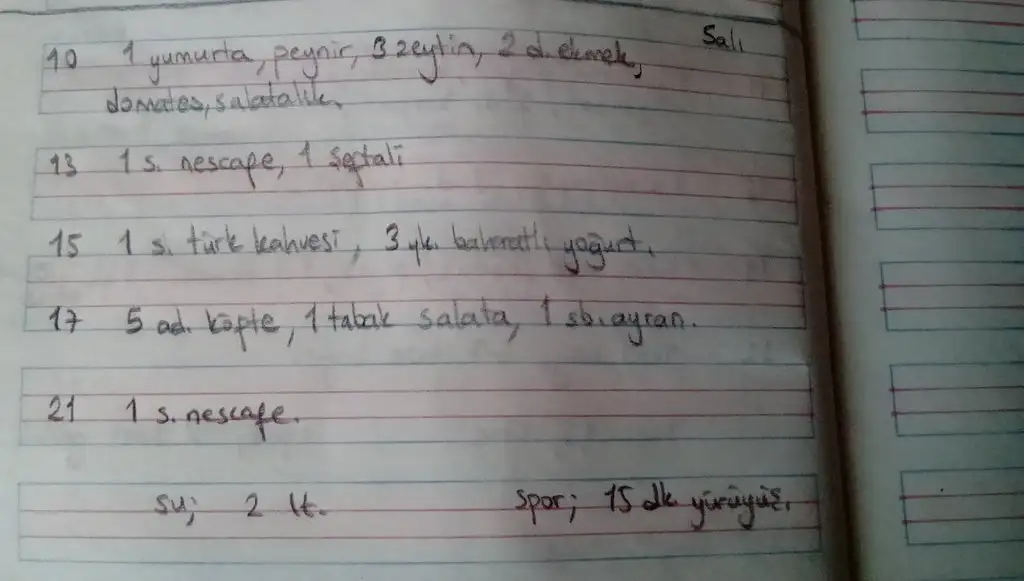 Salı
10 1 yumurta, peynir, 3 zeytin, 2 d. ekmek,
domates, salatalık.
13 1 s. nescafe, 1 şeftali
15 1 s. türk kahvesi, 3 yk. baharatlı yoğurt.
17 5 ad. köfte, 1 tabak salata, 1 sb. ayran.
21 1 s. nescafe.
su; 2 lt. spor; 15 dk yürüyüş.